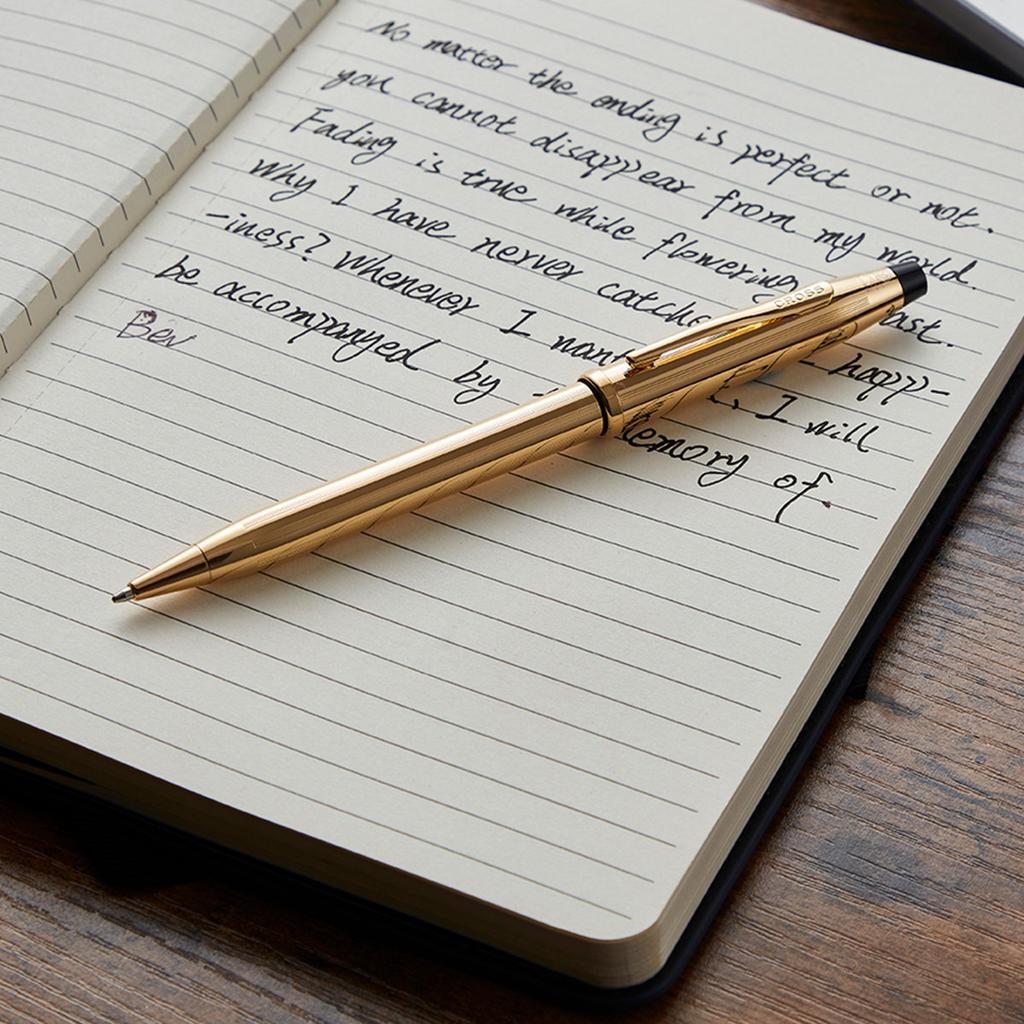 No matter the ending is perfect or not.
you cannot disappear from my world.
Fading is true while flowering past.
Why I have nerver catche happ-
-iness? Whenever I want I will
be accompanyed by Memory of.
Bev
CROSS